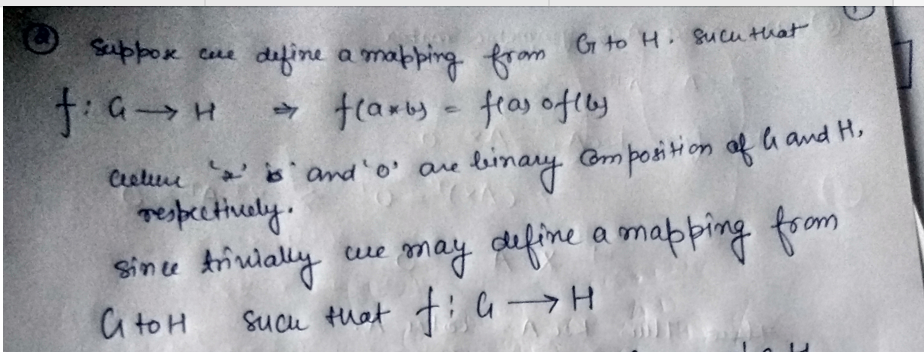 ② Suppose we define a mapping from G to H. such that
f: G → H ⇒ f(a*b) = f(a) o f(b)
where '*' is and 'o' are binary composition of G and H,
respectively.
Since trivially we may define a mapping from
G to H such that f: G → H